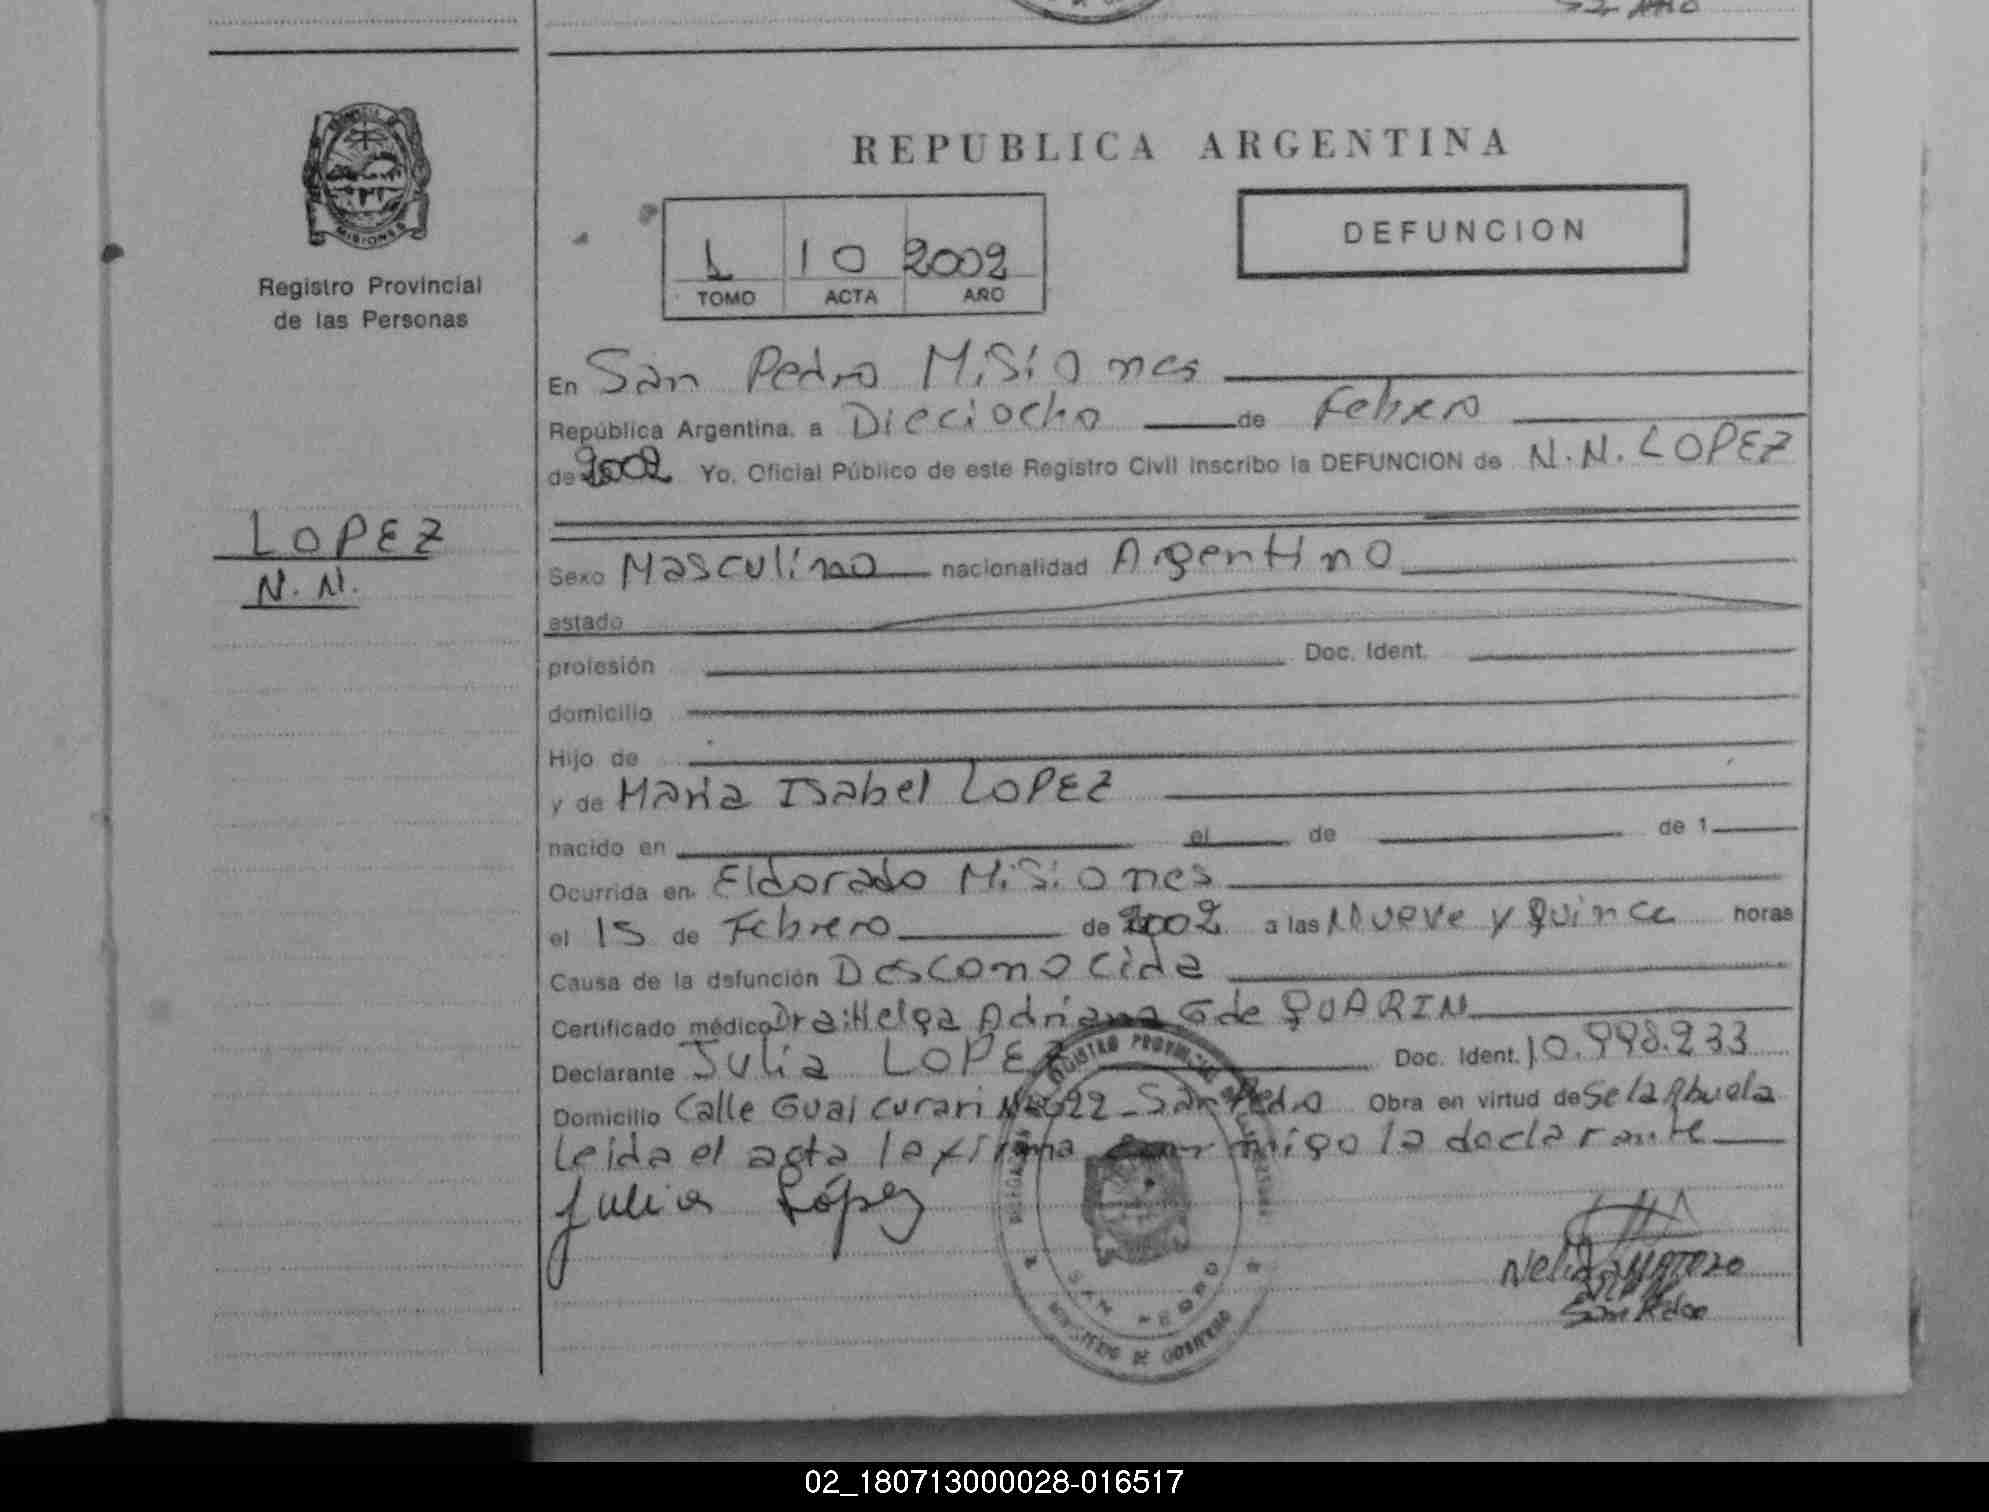 REPUBLICA ARGENTINA
MISIONES
Registro Provincial
de las Personas
1 10 2002
TOMO ACTA AÑO
DEFUNCION
LOPEZ
N.N.
En San Pedro Misiones
República Argentina, a Dieciocho de Febrero
de 2002 Yo, Oficial Público de este Registro Civil inscribo la DEFUNCION de N.N. LOPEZ
Sexo Masculino nacionalidad Argentino
estado
profesión Doc. Ident.
domicilio
Hijo de
y de Maria Isabel LOPEZ
nacido en el de de 1
Ocurrida en Eldorado Misiones
el 15 de Febrero de 2002 a las Nueve y Quince horas
Causa de la defunción Desconocida
Certificado médico Dra: Helga Adriana G de QUARIN
Declarante Julia LOPEZ Doc. Ident. 10.998.233
Domicilio Calle Guaicurari Nº 622 - San Pedro Obra en virtud de Se la Abuela
Leida el acta la firma conmigo la declarante
Julia López
REGISTRO PROVINCIAL DE LAS PERSONAS
DELEGACION
SAN PEDRO
MINISTERIO DE GOBIERNO
Nelida MATOZO
San Pedro
02_180713000028-016517